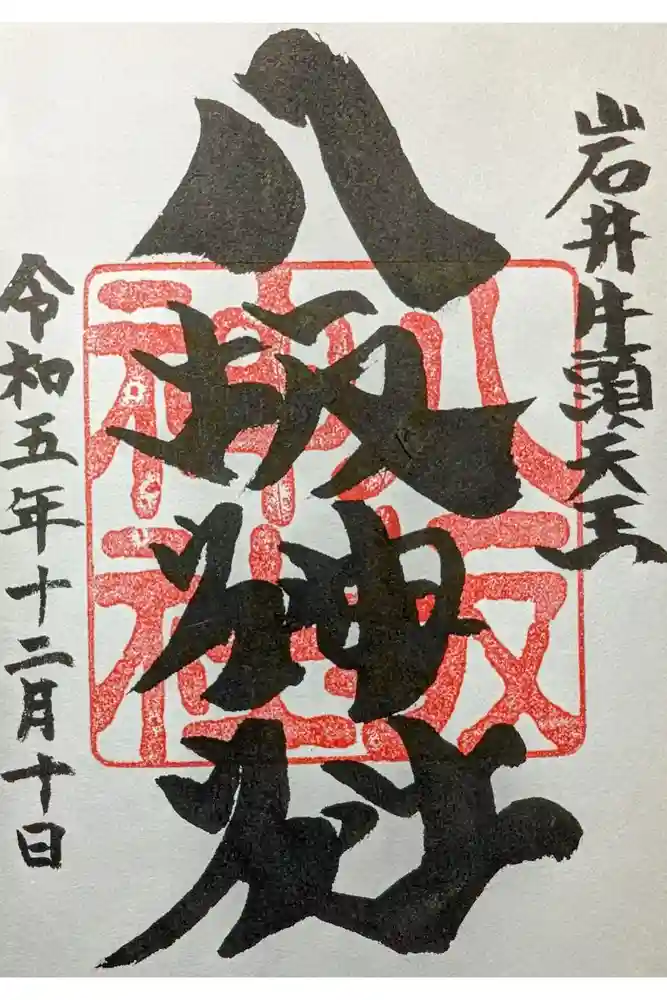 岩井牛頭天王
八坂神社
八坂神社
令和五年十二月十日